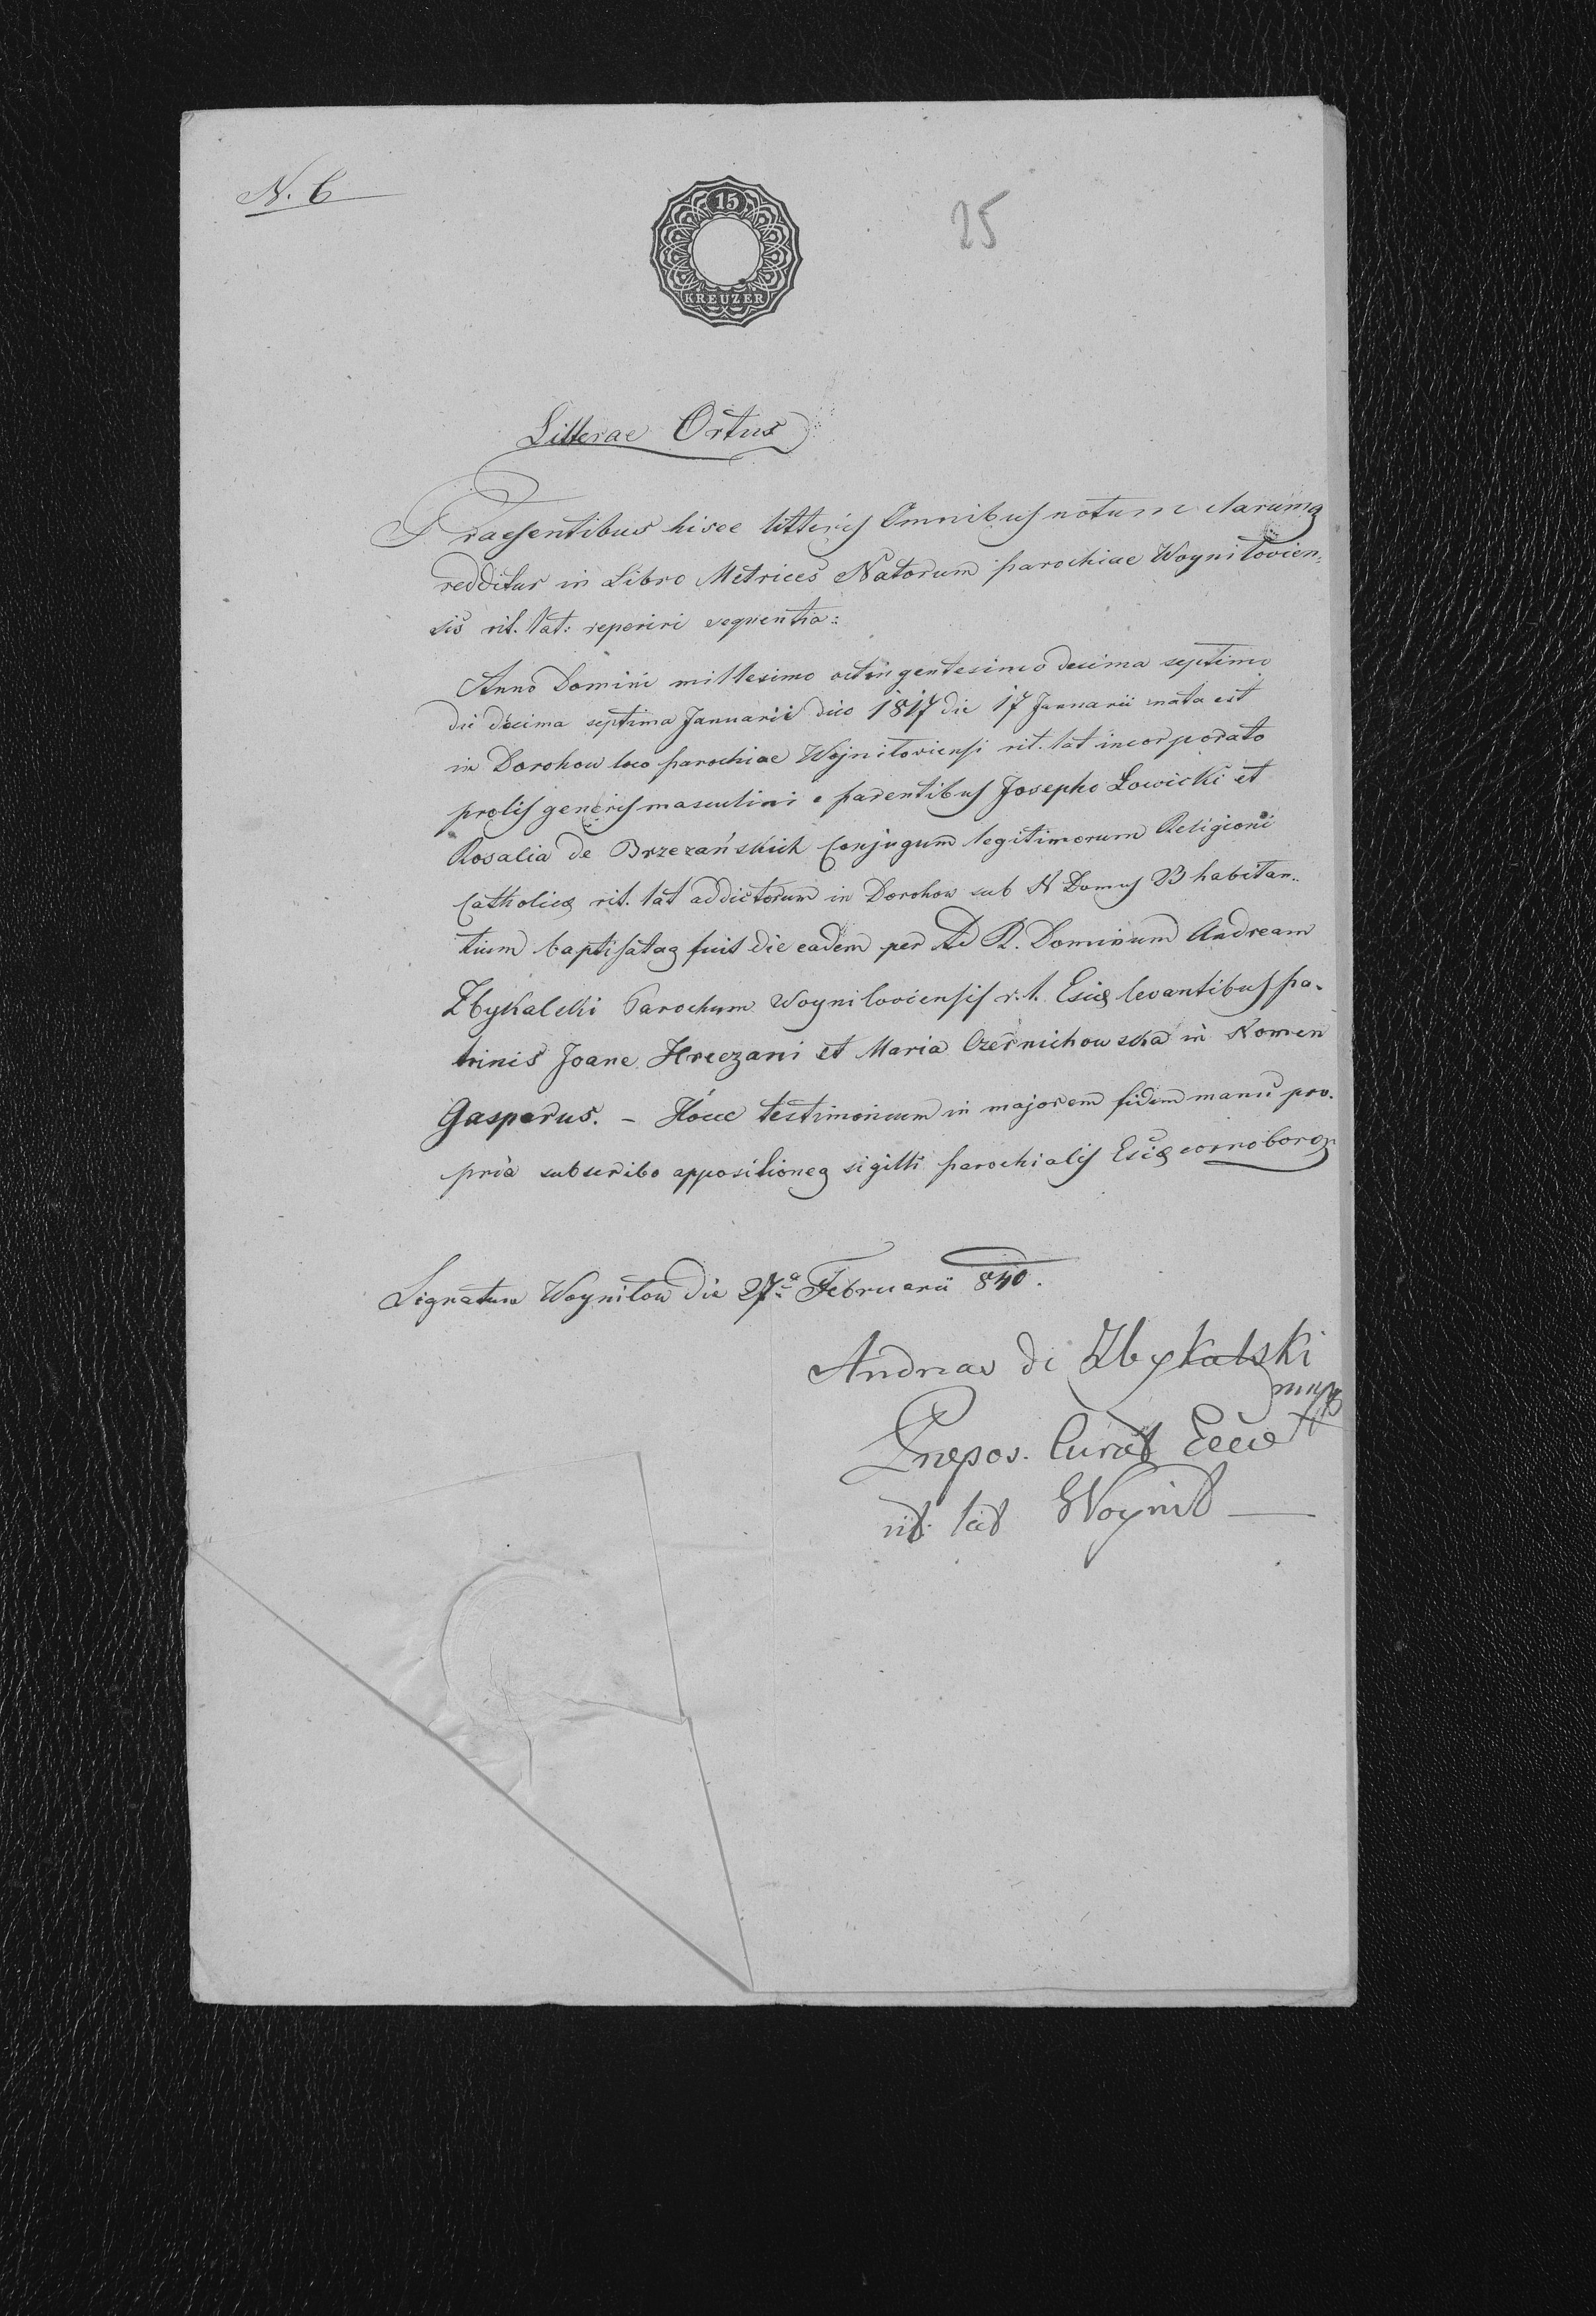 N. 6
15
KREUZER
25
Litterae Ortus
Praesentibus hisce litteris Omnibus notum clarumq
redditur in Libro Metrices Natorum parochiae Woyniłovien=
sis rit. lat: reperiri sequentia:
Anno Domini millesimo octingentesimo decima septimo
die decima septima Januarii dico 1817 die 17 Januarii nata est
in Dorohow loco parochiae Wojniłoviensi rit. lat incorporato
prolis generis masculini e parentibus Josepho Łowicki et
Rosalia de Brzezańskich Conjugum legitimorum Religioni
Catholicae rit. lat addictorum in Dorohow sub N Domus 23 habitan=
tium baptisataq fuit die eadem per Ad R. Dominum Andream
Zbykalski Parochum Woyniloviensis r. l. Esiae levantibus pa-
trinis Joane Hreczani et Maria Czernichowska in Nomen
Gasparus. – Hocce testimonium in majorem fidem manu pro-
pria subscribo appositioneq sigilli parochialis Esiae corroboro
Signatum Woyniłow die 27ª Februarii 840.
Andreas de Zbykalski
mpp
Praepos. Curat Eccae
rit. lat Woynił